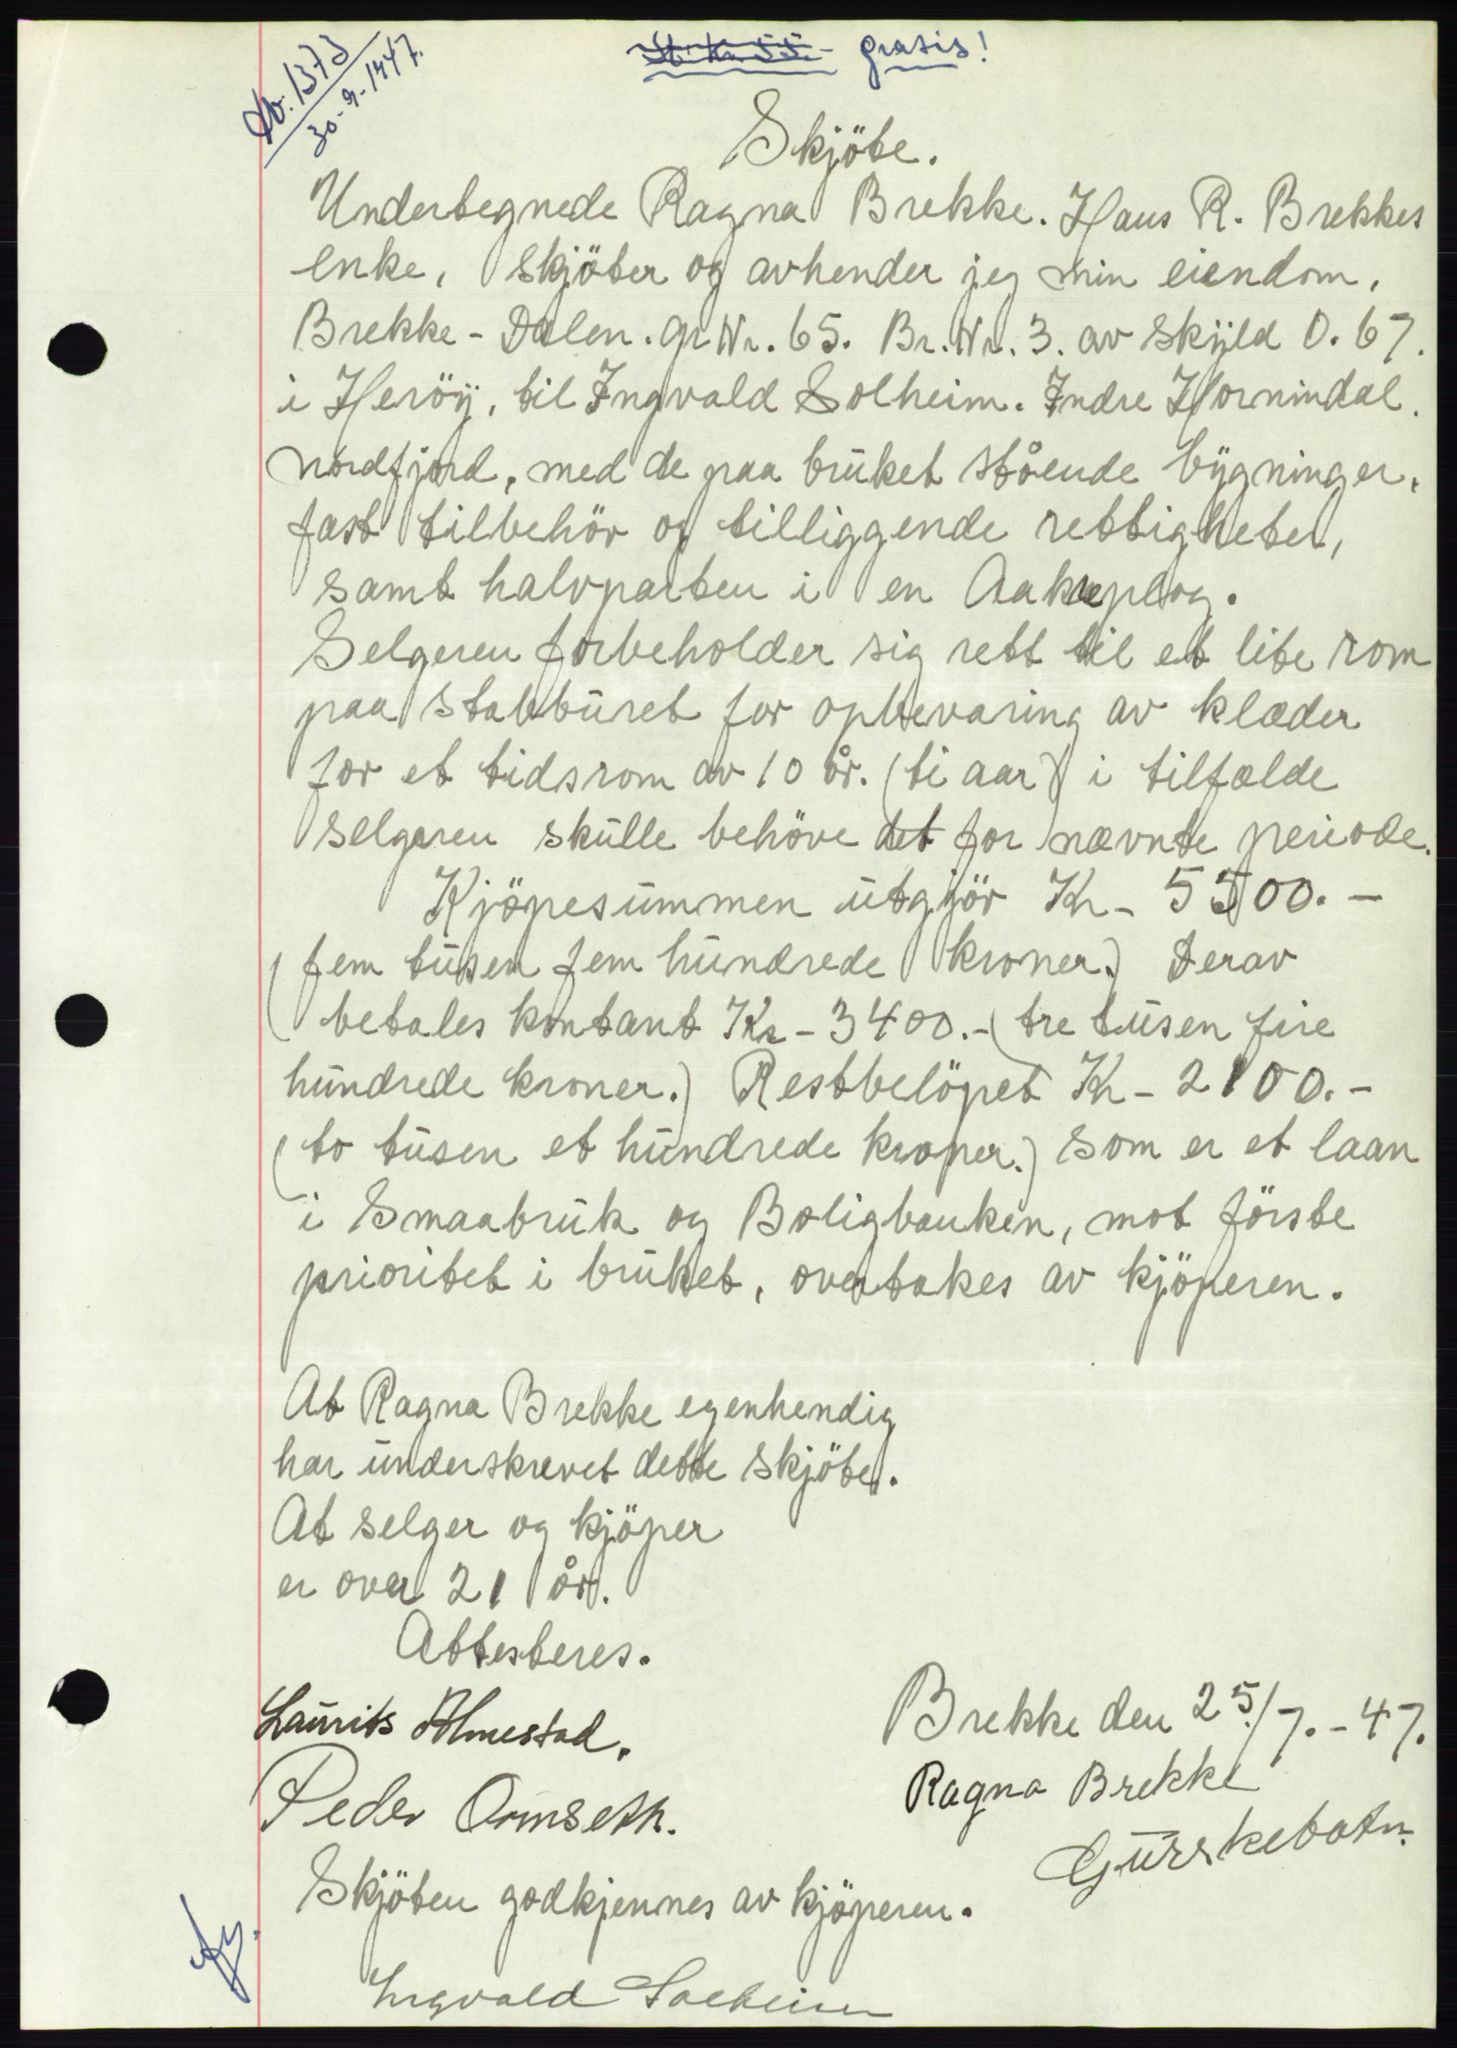 Db. 1373
30-9-1947.
St. kr. 55.- gratis!
Skjöte.
Undertegnede Ragna Brekke. Hans R. Brekkes
enke, skjöter og avhender jeg min eiendom,
Brekke-Dalen. Gr. Nr. 65. Br. Nr. 3. av skyld 0.67.
i Heröy, til Ingvald Solheim. Indre Hornindal.
Nordfjord, med de paa bruket stående bygninger,
fast tilbehör og tilliggende rettigheter,
samt halvparten i en Aakerplog.
Selgeren forbeholder sig rett til et lite rom
paa stabburet for opbevaring av klæder
for et tidsrom av 10 år. (ti aar) i tilfælde
selgeren skulle behöve det for nævnte periode.
Kjöpesummen utgjör Kr- 5500.-
(fem tusen fem hundrede kroner.) Derav
betales kontant Kr- 3400.- (tre tusen fire
hundrede kroner.) Restbelöpet Kr- 2100.-
(to tusen et hundrede kroner.) som er et laan
i Smaabruk og Boligbanken, mot förste
prioritet i bruket, overtakes av kjöperen.
At Ragna Brekke egenhendig
har underskrevet dette skjöte.
At selger og kjöper
er over 21 år.
Attesteres.
Laurits Almestad.
Peder Ormseth.
Brekke den 25/7.-47.
Ragna Brekke
Gurskebotn.
Skjöten godkjennes av kjöperen.
Ingvald Solheim